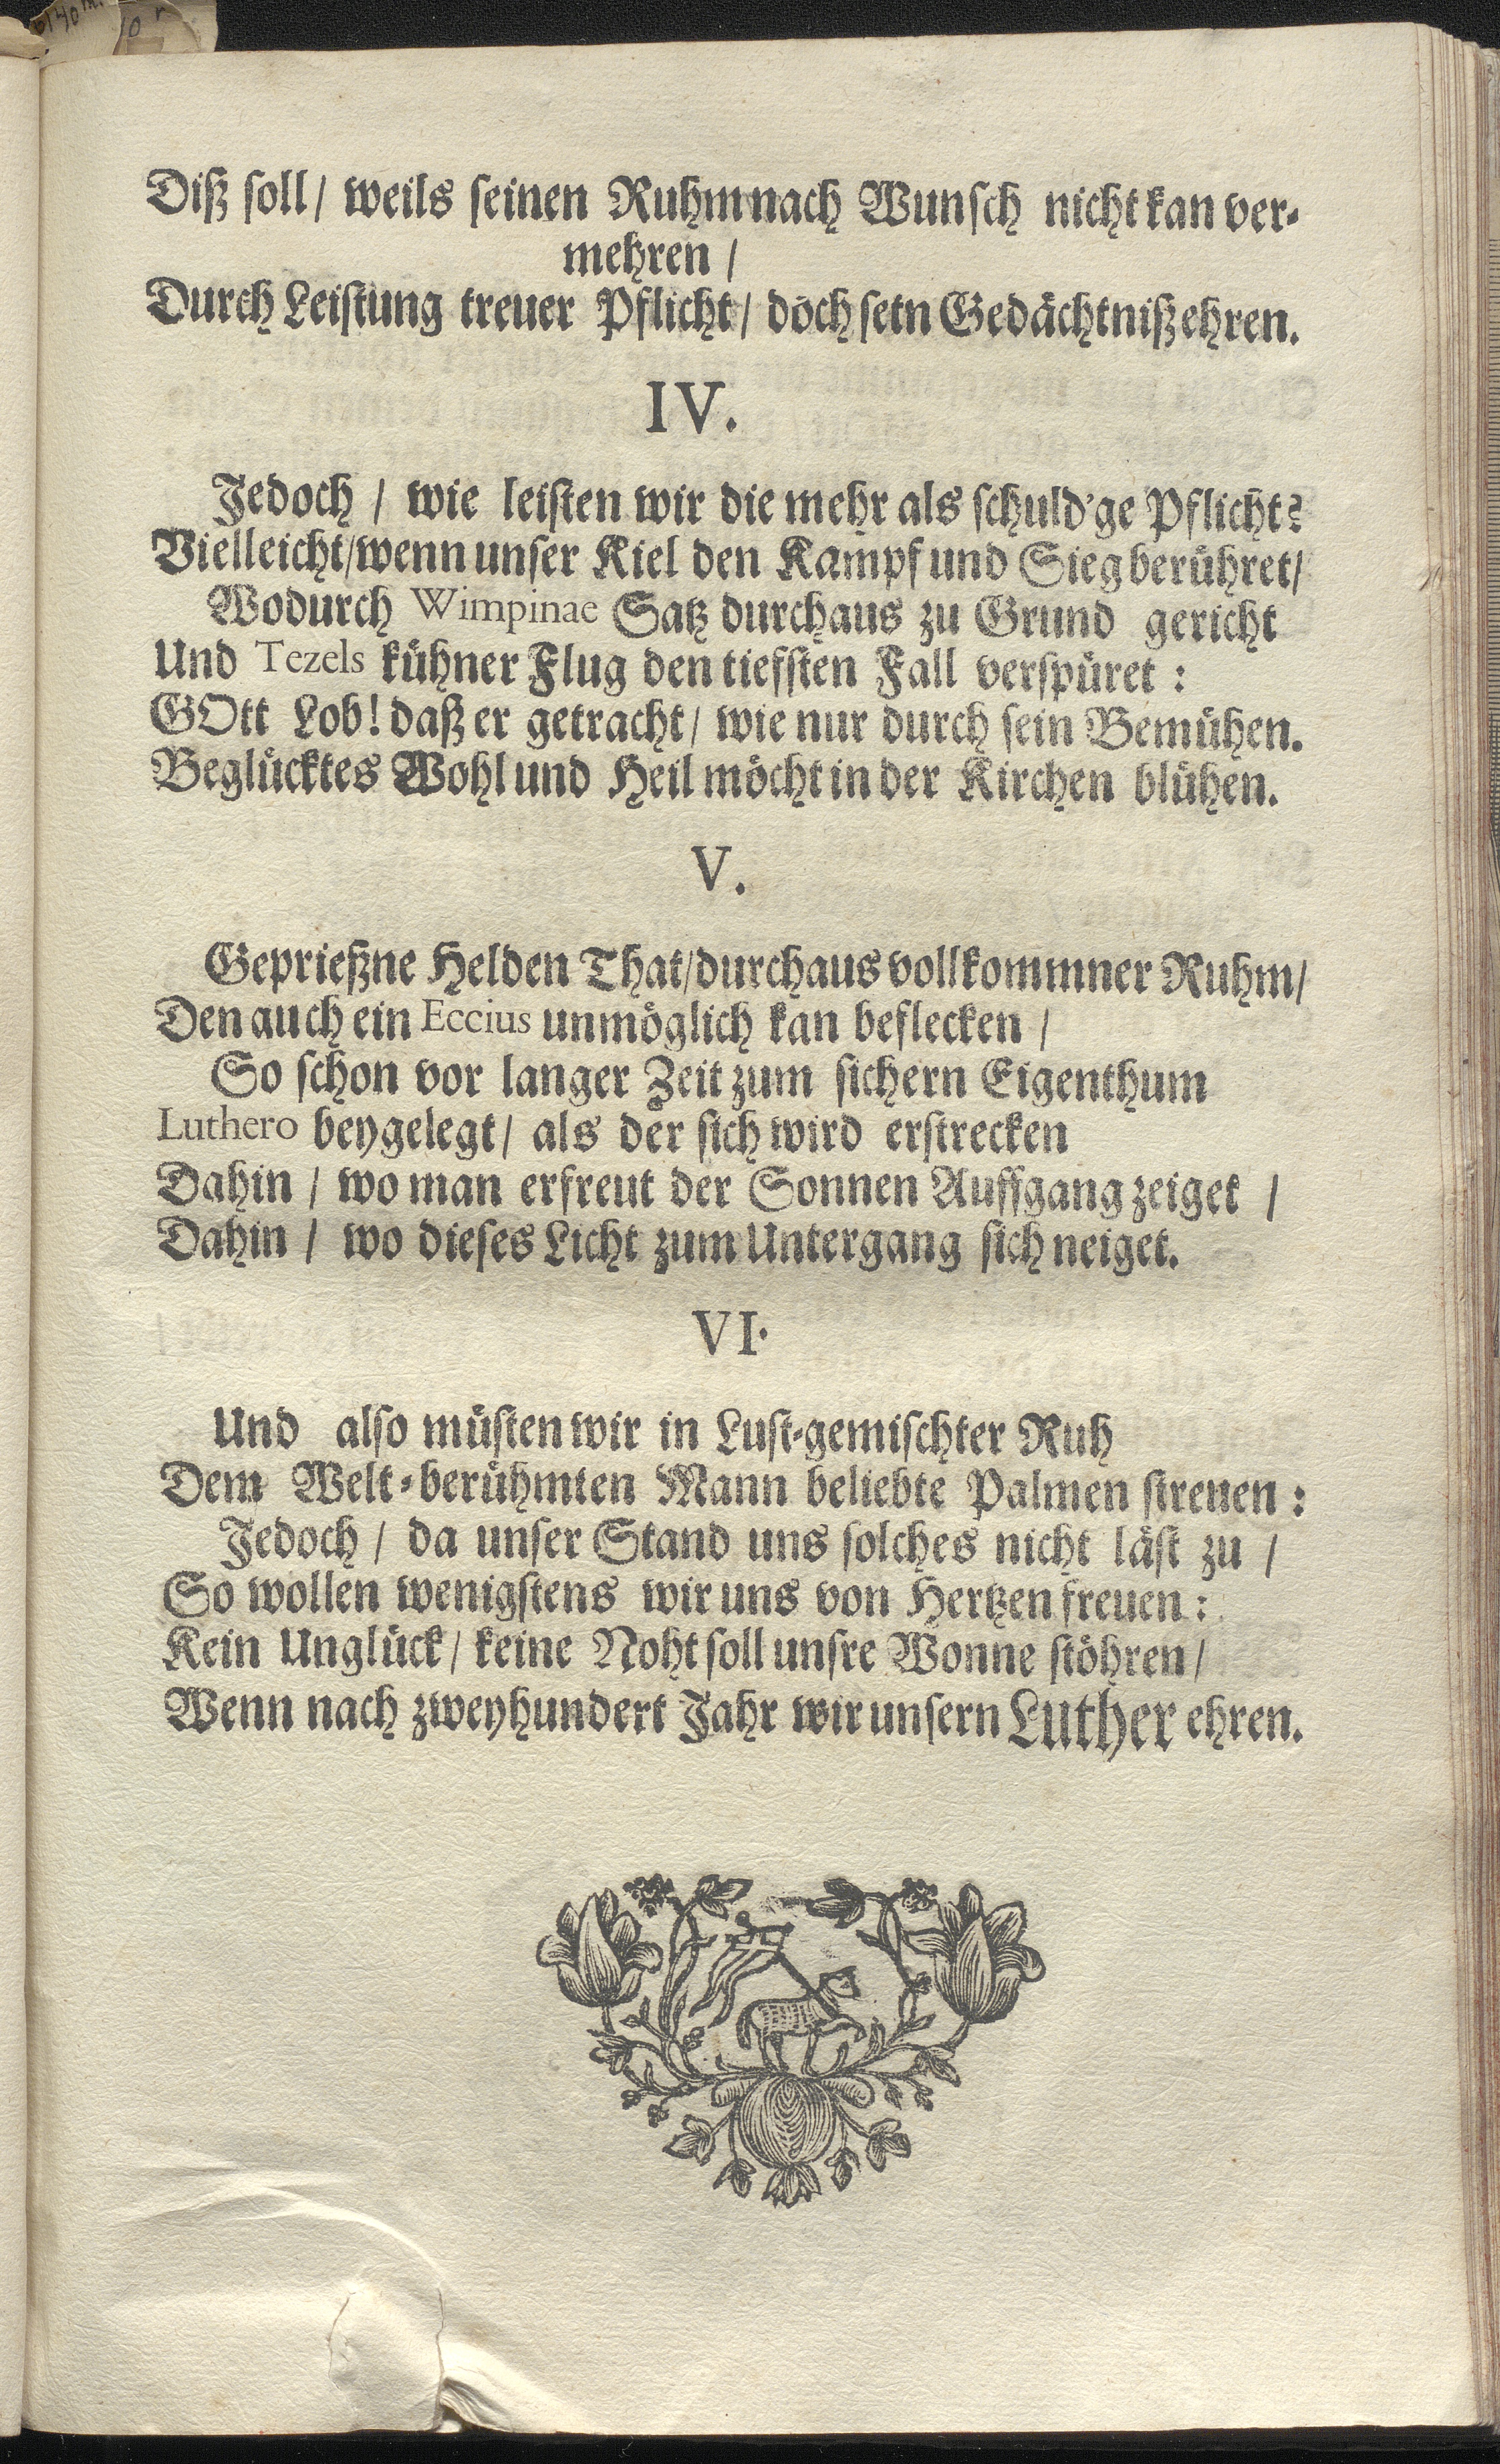 Diß soll/ weils seinen Ruhm nach Wunsch nicht kan ver-
mehren /
Durch Leistung treuer Pflicht/ doch setn Gedächtniß ehren.
IV.
Jedoch / wie leisten wir die mehr als schuld'ge Pflicht?
Vielleicht/ wenn unser Kiel den Kampf und Sieg berühret/
Wodurch Wimpinae Satz durchaus zu Grund gericht
Und Tezels kühner Flug den tiefsten Fall verspüret :
GOtt Lob! daß er getracht/ wie nur durch sein Bemühen.
Beglücktes Wohl und Heil möcht in der Kirchen blühen.
V.
Geprießne Helden That/ durchaus vollkommner Ruhm/
Den auch ein Eccius unmöglich kan beflecken /
So schon vor langer Zeit zum sichern Eigenthum
Luthero beygelegt/ als der sich wird erstrecken
Dahin / wo man erfreut der Sonnen Auffgang zeiget /
Dahin / wo dieses Licht zum Untergang sich neiget.
VI.
Und also müsten wir in Lust-gemischter Ruh
Dem Welt-berühmten Mann beliebte Palmen streuen :
Jedoch / da unser Stand uns solches nicht läst zu /
So wollen wenigstens wir uns von Hertzen freuen :
Kein Unglück/ keine Noht soll unsre Wonne stöhren/
Wenn nach zweyhundert Jahr wir unsern Luther ehren.